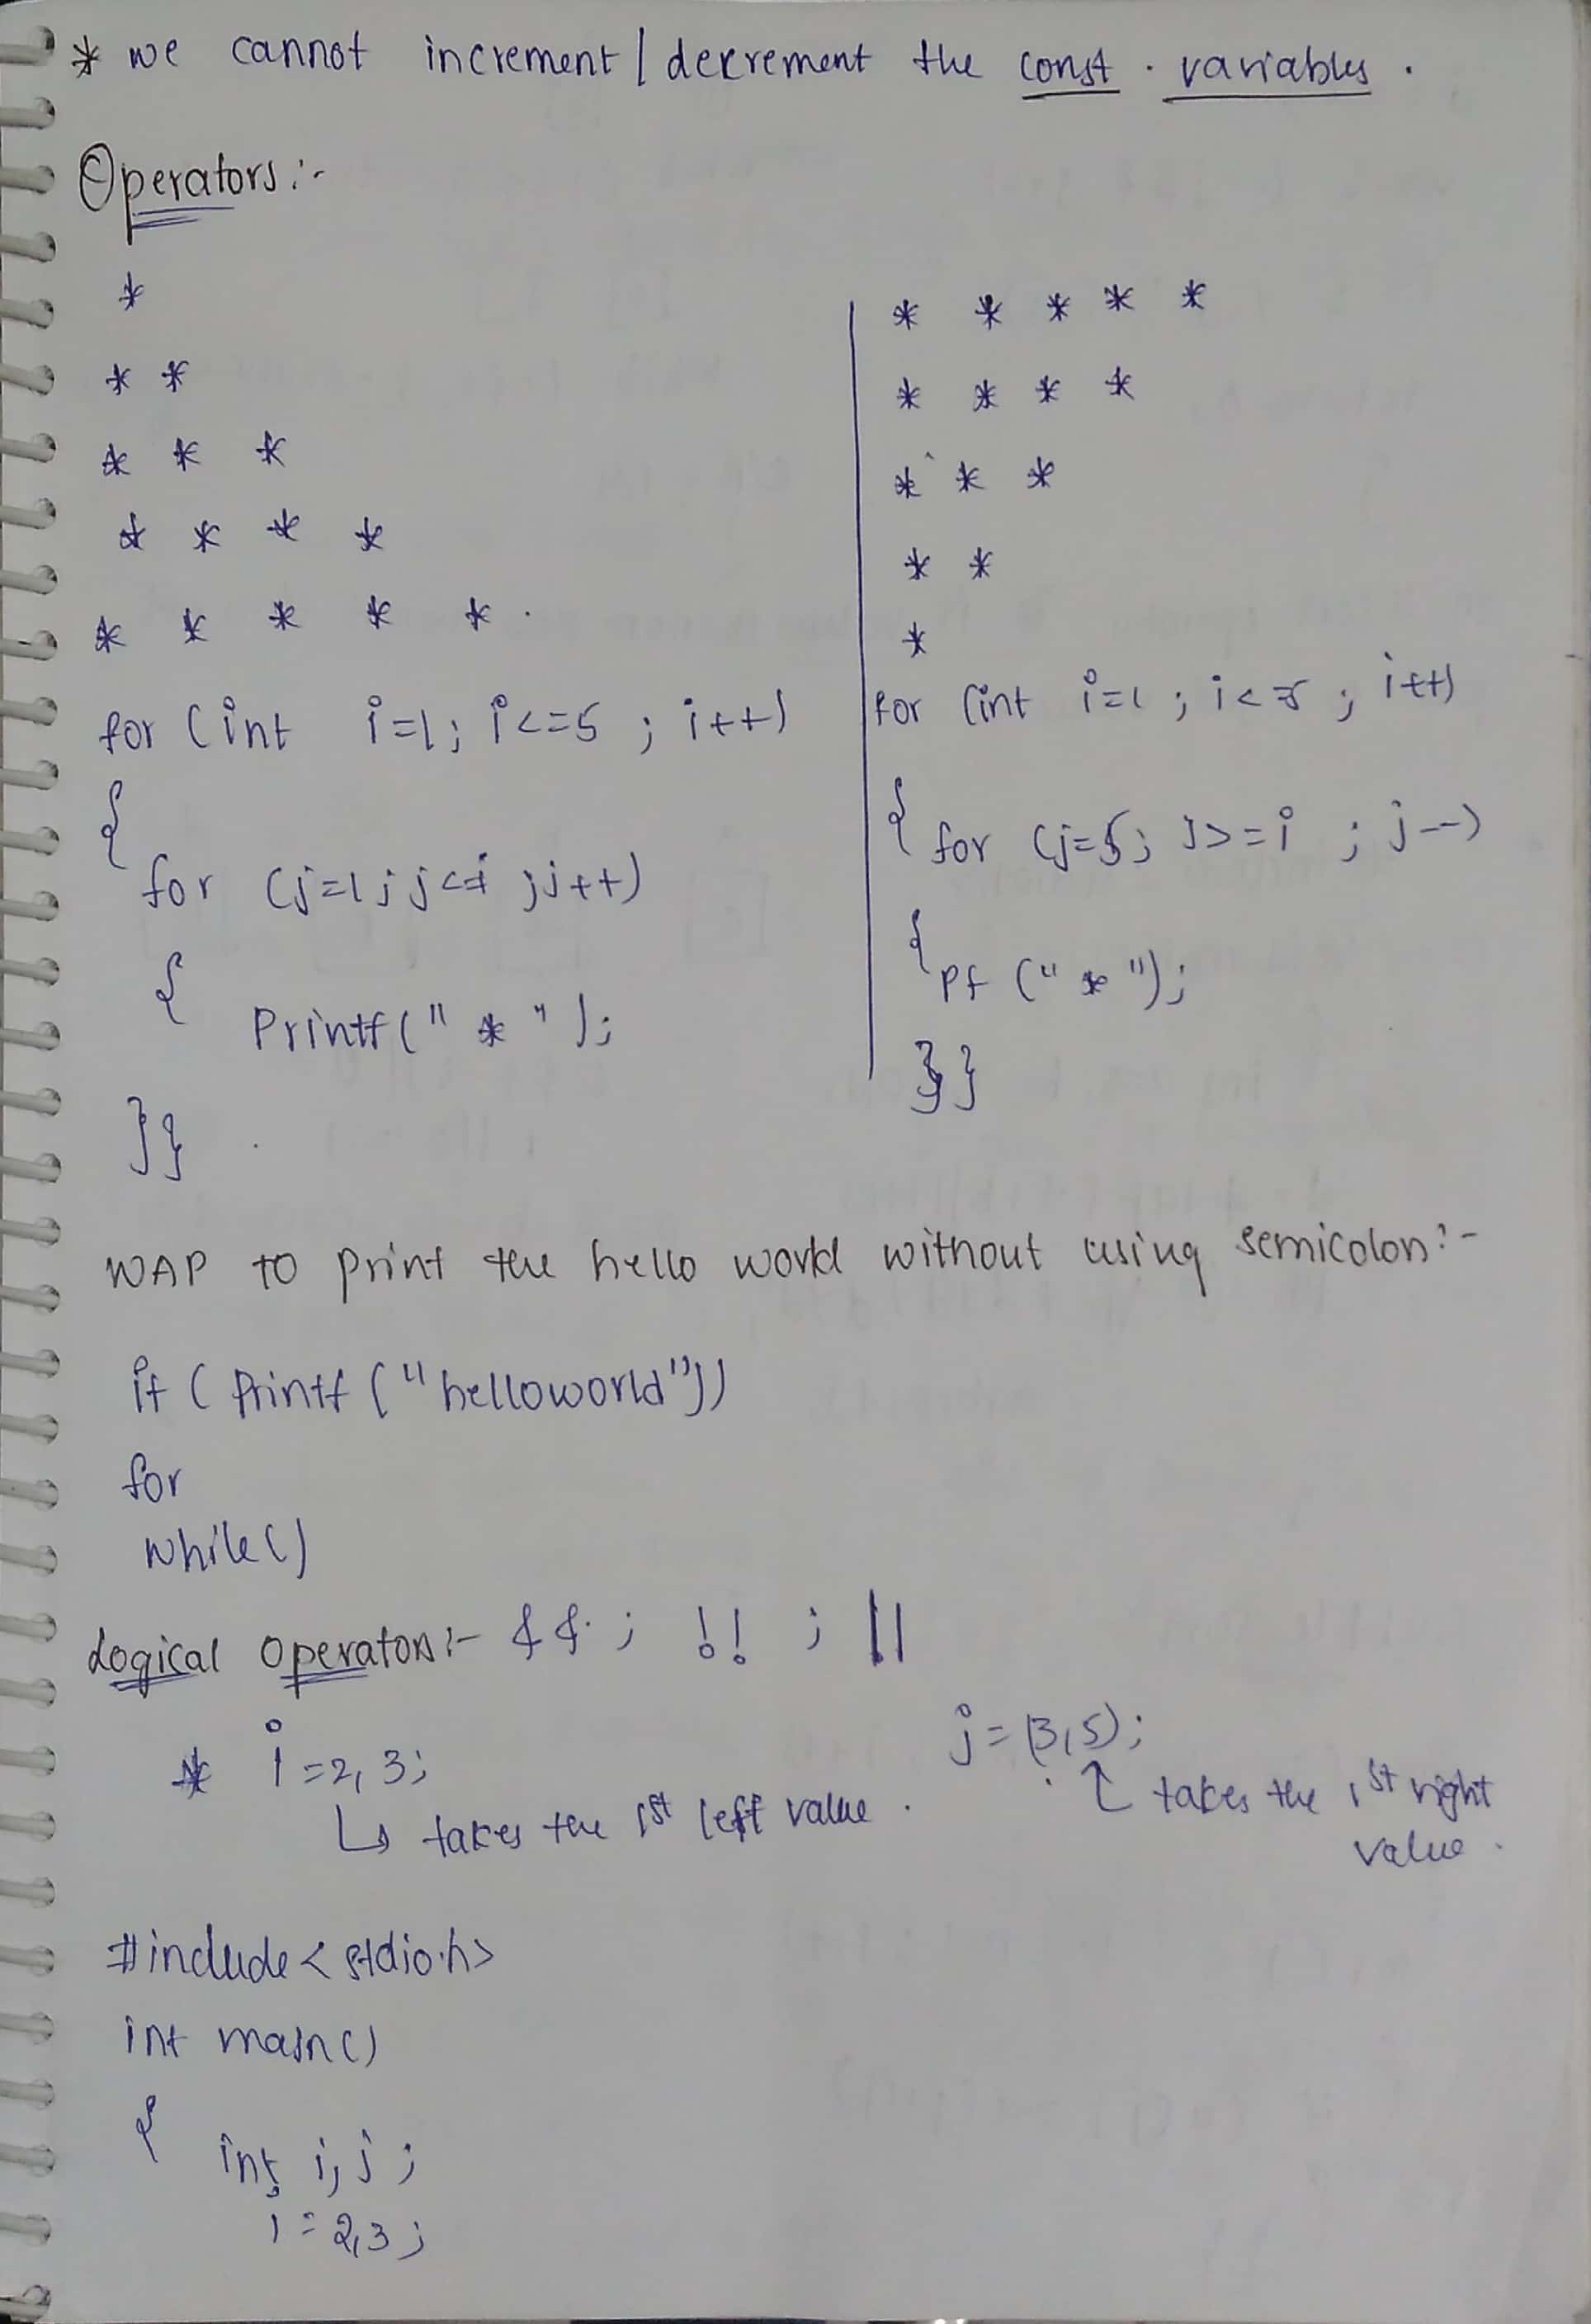 * we cannot increment / decrement the const. variables.
Operators :-
*
* *
* * *
* * * *
* * * * *.
for (int i=1; i<=5; i++)
{
for (j=1; j<=i; j++)
{
Printf(" * ");
}}
* * * * *
* * * *
* * *
* *
*
for (int i=1; i<=5; i++)
{ for (j=5; j>=i; j--)
{ Pf (" * ");
}}
WAP to print the hello world without using semicolon :-
if ( Printf ("helloworld"))
for
while()
Logical operators :- && ; !! ; ||
* i=2,3;
↳ takes the 1st left value.
j=(3,5);
↑ takes the 1st right
value.
#include<stdio.h>
int main()
{
int i,j;
i=2,3;